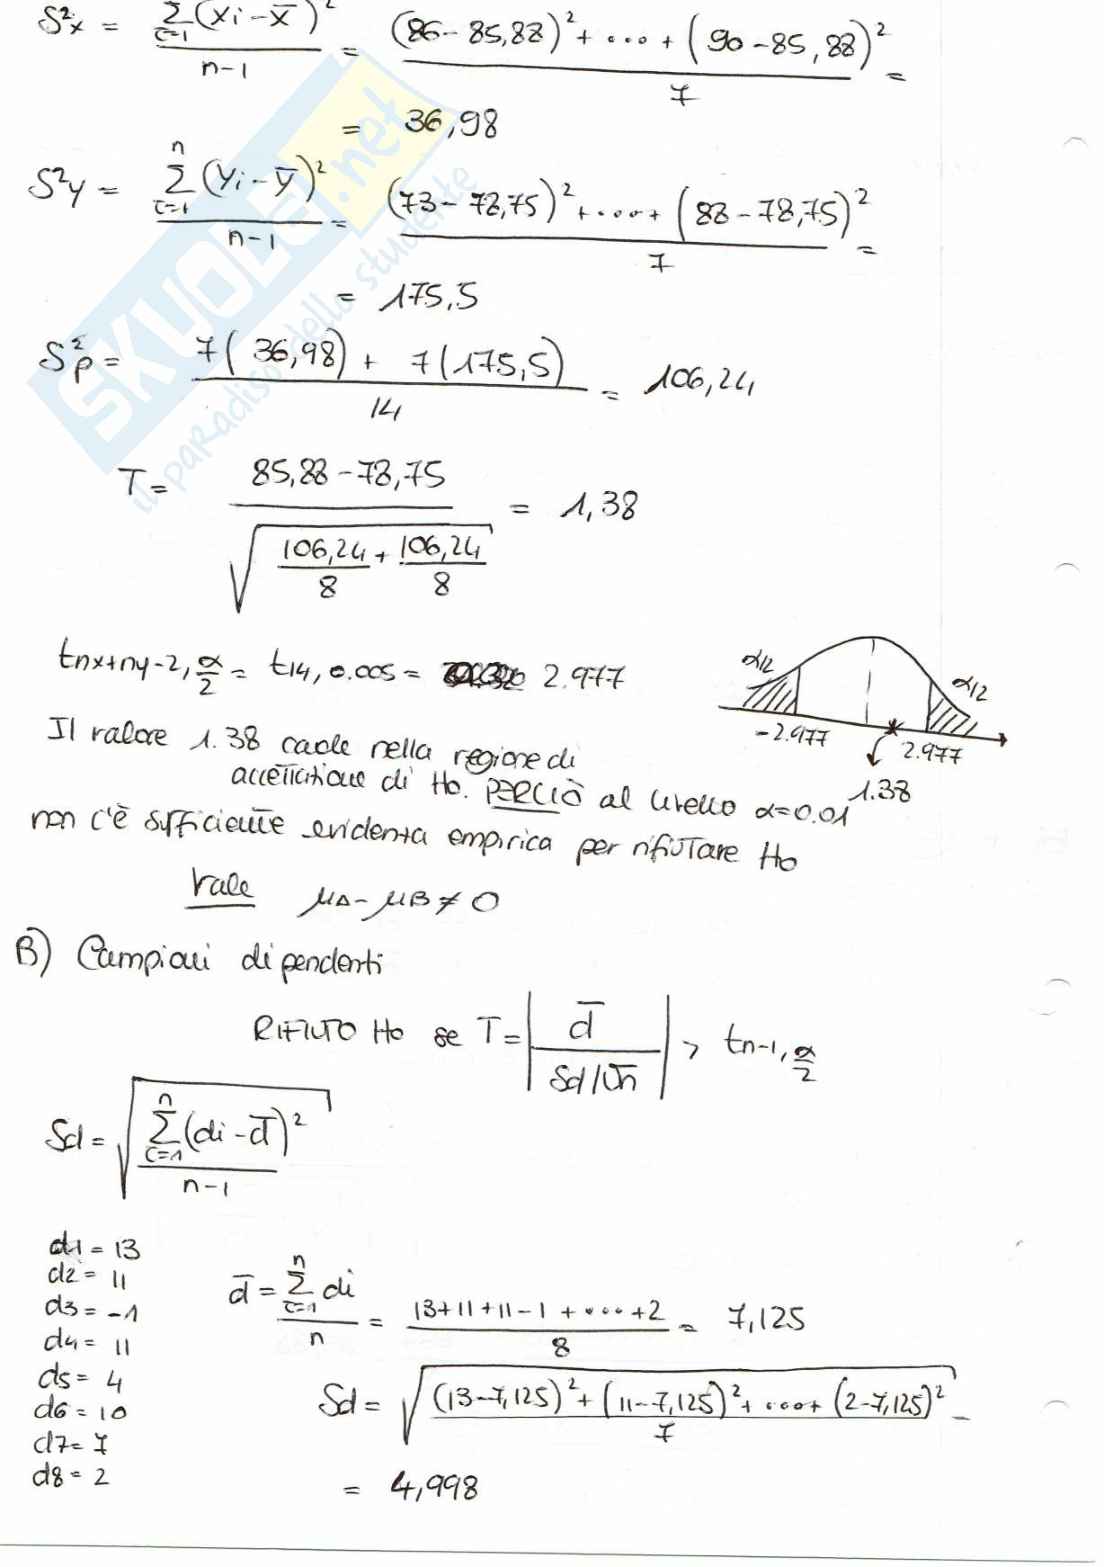 S²x = Σ i=1 (xi - x̄)² / n-1 = (86-85,88)² + .... + (90-85,88)² / 7 =
= 36,98
S²y = Σ n i=1 (yi - ȳ)² / n-1 = (73-78,75)² + ..... + (88-78,75)² / 7 =
= 175,5
S²p = 7(36,98) + 7(175,5) / 14 = 106,24
T = 85,88-78,75 / √(106,24/8 + 106,24/8) = 1,38
tnx+ny-2, α/2 = t14, 0.005 = 2.977
α/2 α/2
-2.977 2.977
1.38
Il valore 1.38 cade nella regione di
accettazione di Ho. PERCIÒ al livello α=0.01
non c'è sufficiente evidenza empirica per rifiutare Ho
Vale μA - μB ≠ 0
B) Campioni dipendenti
RIFIUTO Ho se T = | d̄ / Sd/√n | > tn-1, α/2
Sd = √(Σ n i=1 (di - d̄)² / n-1)
d1 = 13
d2 = 11
d3 = -1
d4 = 11
d5 = 4
d6 = 10
d7 = 7
d8 = 2
d̄ = Σ n i=1 di / n = 13+11+11-1+....+2 / 8 = 7,125
Sd = √((13-7,125)² + (11-7,125)² + .....+ (2-7,125)² / 7) =
= 4,998
SKUOLA.net
il paradiso dello studente